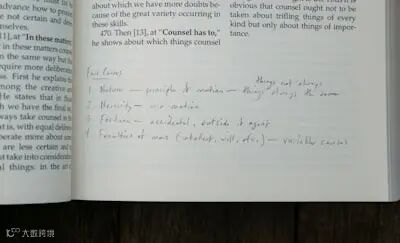 advance how to
e not certain and
mselves.
[11], at "In these matters
in these matters
in the same way but
equire more
s. First he explains
among the creative
He states that in
h we have the final
ways take counsel in
at is, with equal
berate more about
are less certain and
st take into
al things: in the art
about which we have more doubts be-
cause of the great variety occurring in
these skills.
470. Then [13], at "Counsel has to,"
he shows about which things counsel
obvious that counsel ought not to be
taken about trifling things of every
kind but only about things of impor-
tance.
Four Causes
things not always
1. Nature — principle of motion — things always the same
2. Necessity — motion
3. Fortune — accidental, outside of agent
4. Faculties of man (intellect, will, etc.) — variable causes
大数跨境